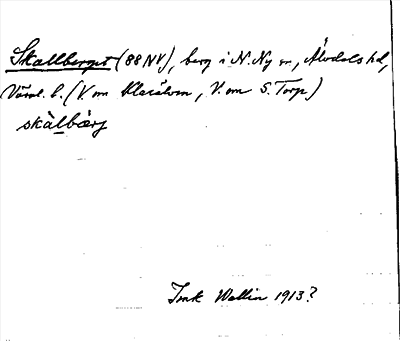 Skallberget (88NV), berg i N. Ny sn, Älvdals hd,
Värml. l. (V. om Klarälven, V. om S. Torp)
skàlbærj
Jonk Wallin 1913?